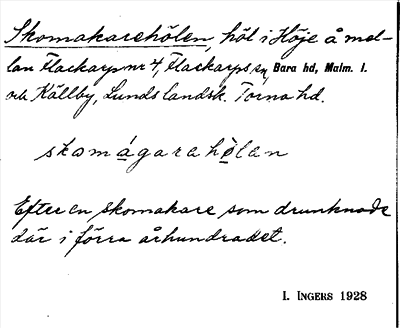 Skomakarehölen, höl i Höje å mel-
lan Flackarp nr 4, Flackarps sn, Bara hd, Malm. l.
och Källby, Lunds landsk. Torna hd.
skomágarahölan
Efter en skomakare som drunknade
där i förra århundradet.
I. INGERS 1928